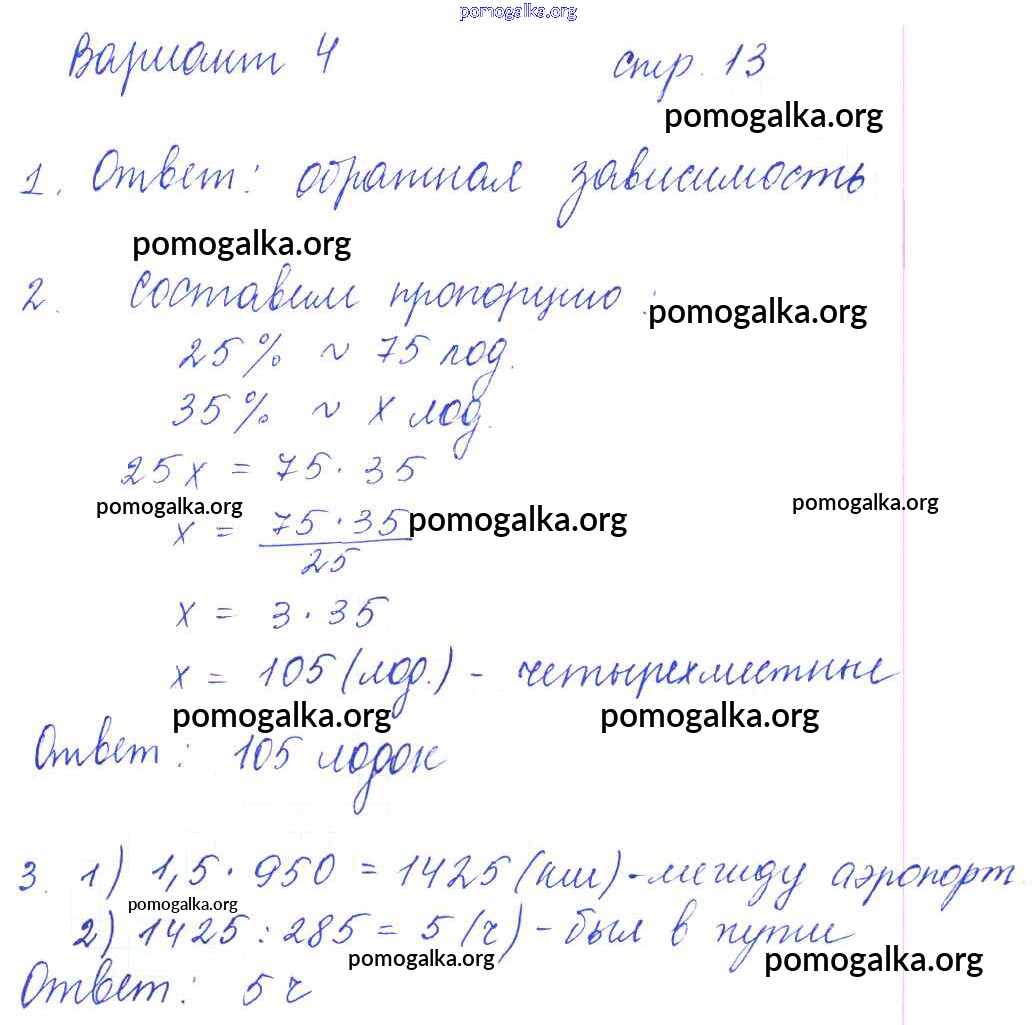 pomogalka.org
Вариант 4 стр. 13
pomogalka.org
1. Ответ: обратная зависимость
pomogalka.org
2. Составим пропорцию:
pomogalka.org
25% ~ 75 лод.
35% ~ х лод.
25х = 75 · 35
pomogalka.org pomogalka.org pomogalka.org
х = 75 · 35 / 25
х = 3 · 35
х = 105 (лод.) - четырехместные
pomogalka.org pomogalka.org
Ответ: 105 лодок
3. 1) 1,5 · 950 = 1425 (км) - между аэропорт.
pomogalka.org
2) 1425 : 285 = 5 (ч) - был в пути
pomogalka.org pomogalka.org
Ответ: 5 ч